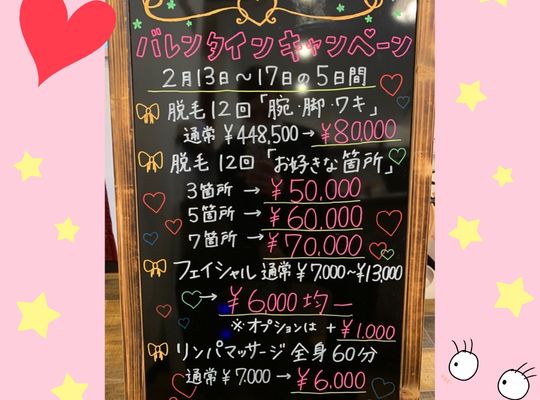 バレンタインキャンペーン
2月13日～17日の5日間
脱毛12回「腕・脚・ワキ」
通常 ¥448,500→¥80,000
脱毛12回「お好きな箇所」
3箇所 → ¥50,000
5箇所 → ¥60,000
7箇所 → ¥70,000
フェイシャル 通常 ¥7,000～¥13,000
→ ¥6,000均一
※オプションは +¥1,000
リンパマッサージ 全身60分
通常 ¥7,000 → ¥6,000